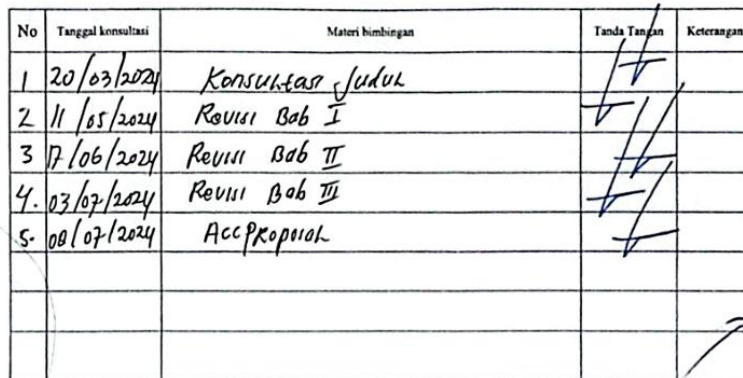 No Tanggal konsultasi Materi bimbingan Tanda Tangan Keterangan
1 20/03/2024 Konsultasi Judul
2 11/05/2024 Revisi Bab I
3 17/06/2024 Revisi Bab II
4. 03/07/2024 Revisi Bab III
5. 08/07/2024 Acc Proposal